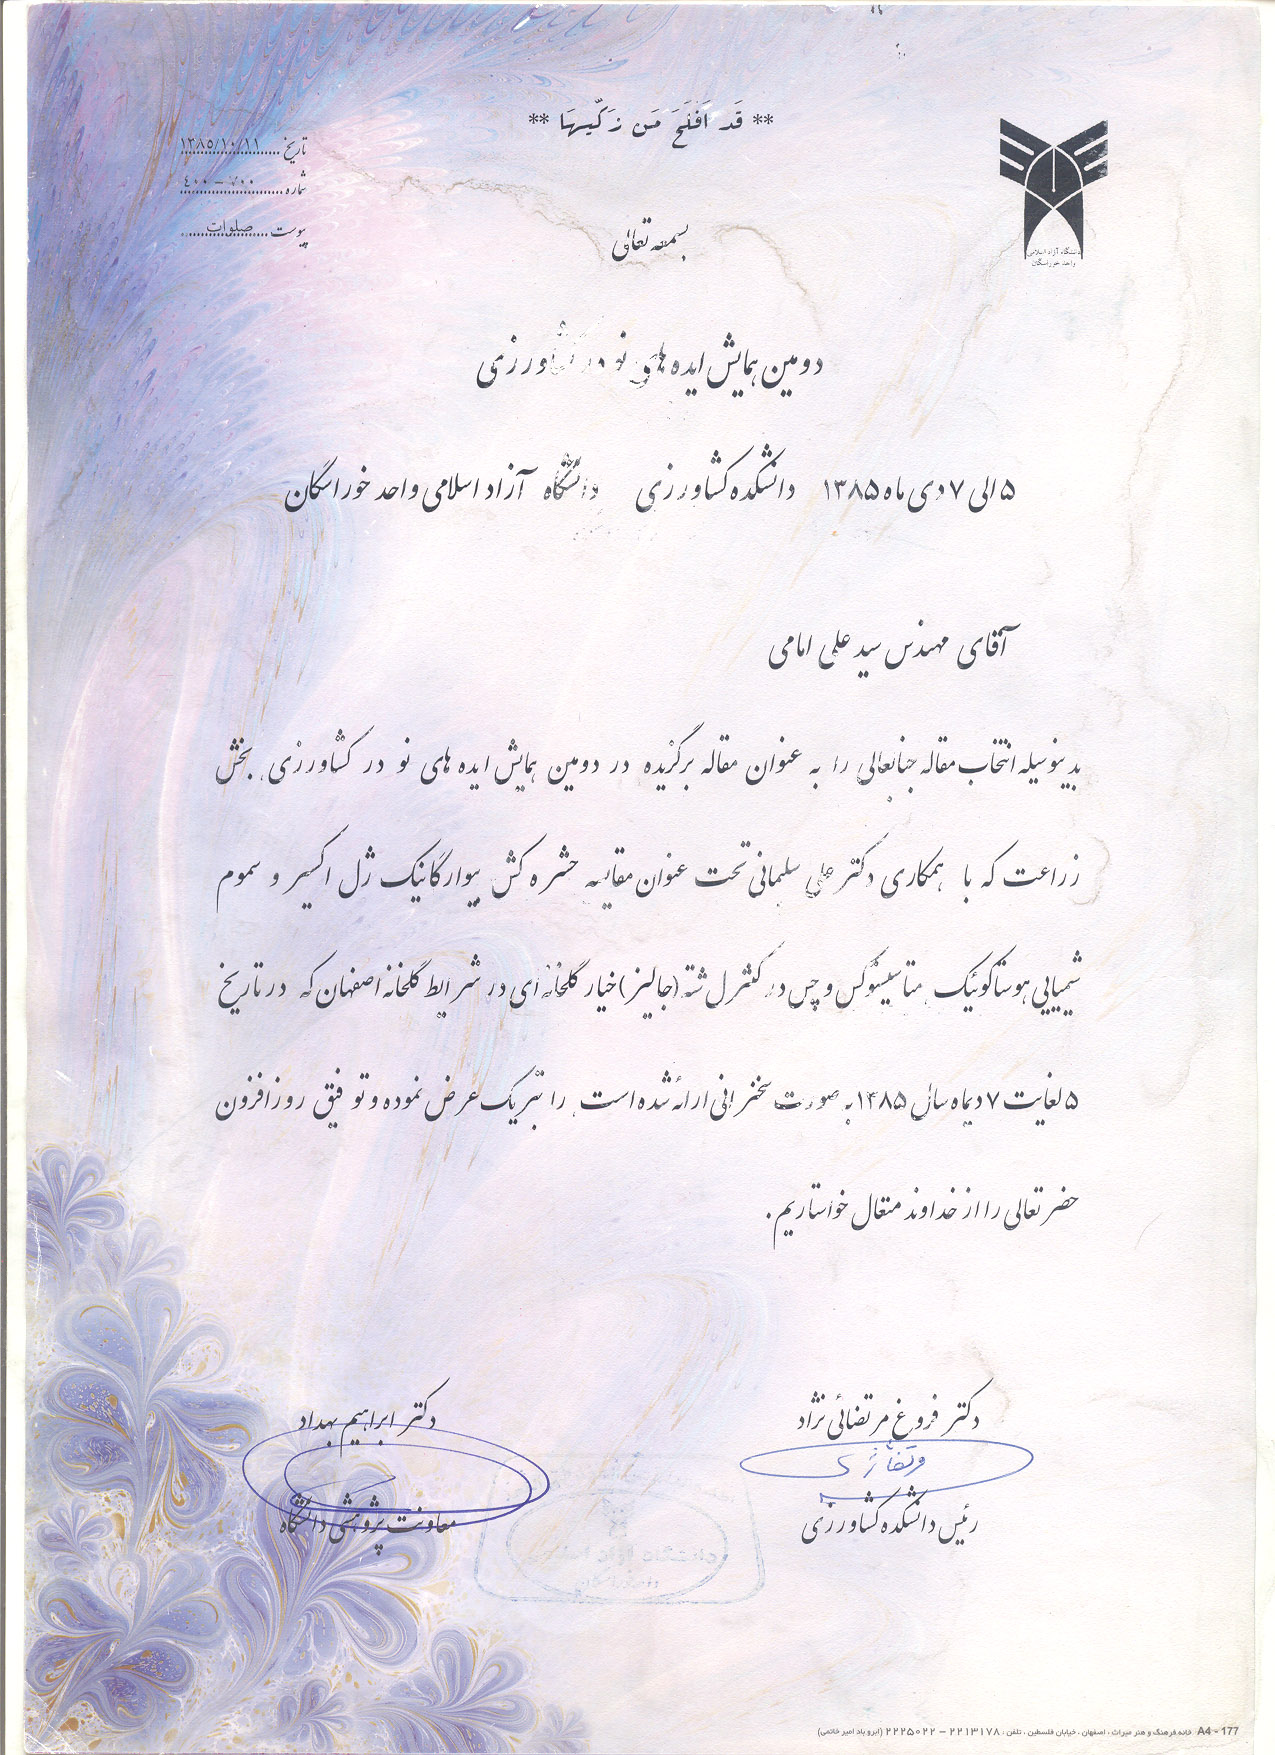 ** قَد اَفلَحَ مَن زَکّیها **
تاریخ ۱۳۸۵/۱۰/۱۱
شماره ۷۰۰ – ۴۰۰
پیوست صلوات
دانشگاه آزاد اسلامی
واحد خوراسگان
بسمعه تعالی
دومین همایش ایده های نو در کشاورزی
۵ الی ۷ دی ماه ۱۳۸۵ دانشکده کشاورزی دانشگاه آزاد اسلامی واحد خوراسگان
آقای مهندس سید علی امامی
بدینوسیله انتخاب مقاله جنابعالی را به عنوان مقاله برگزیده در دومین همایش ایده های نو در کشاورزی، بخش
زراعت که با همکاری دکتر علی سلیمانی تحت عنوان مقایسه حشره کش بیوارگانیک ژل اکسیر و سموم
شیمیایی هوستاکوئیک، متاسیستوکس و چس در کنترل شته (جالیز) خیار گلخانه ای در شرایط گلخانه اصفهان که در تاریخ
۵ لغایت ۷ دیماه سال ۱۳۸۵ به صورت سخنرانی ارائه شده است، را تبریک عرض نموده و توفیق روزافزون
حضرتعالی را از خداوند متعال خواستاریم.
دکتر فروغ مرتضائی نژاد
رئیس دانشکده کشاورزی
دکتر ابراهیم بهداد
معاونت پژوهشی دانشگاه
A4 - 177 خانه فرهنگ و هنر میراث ، اصفهان ، خیابان فلسطین ، تلفن : ۲۲۱۳۱۷۸ – ۲۲۲۵۰۲۲ (ابرو باد امیر خاتمی)